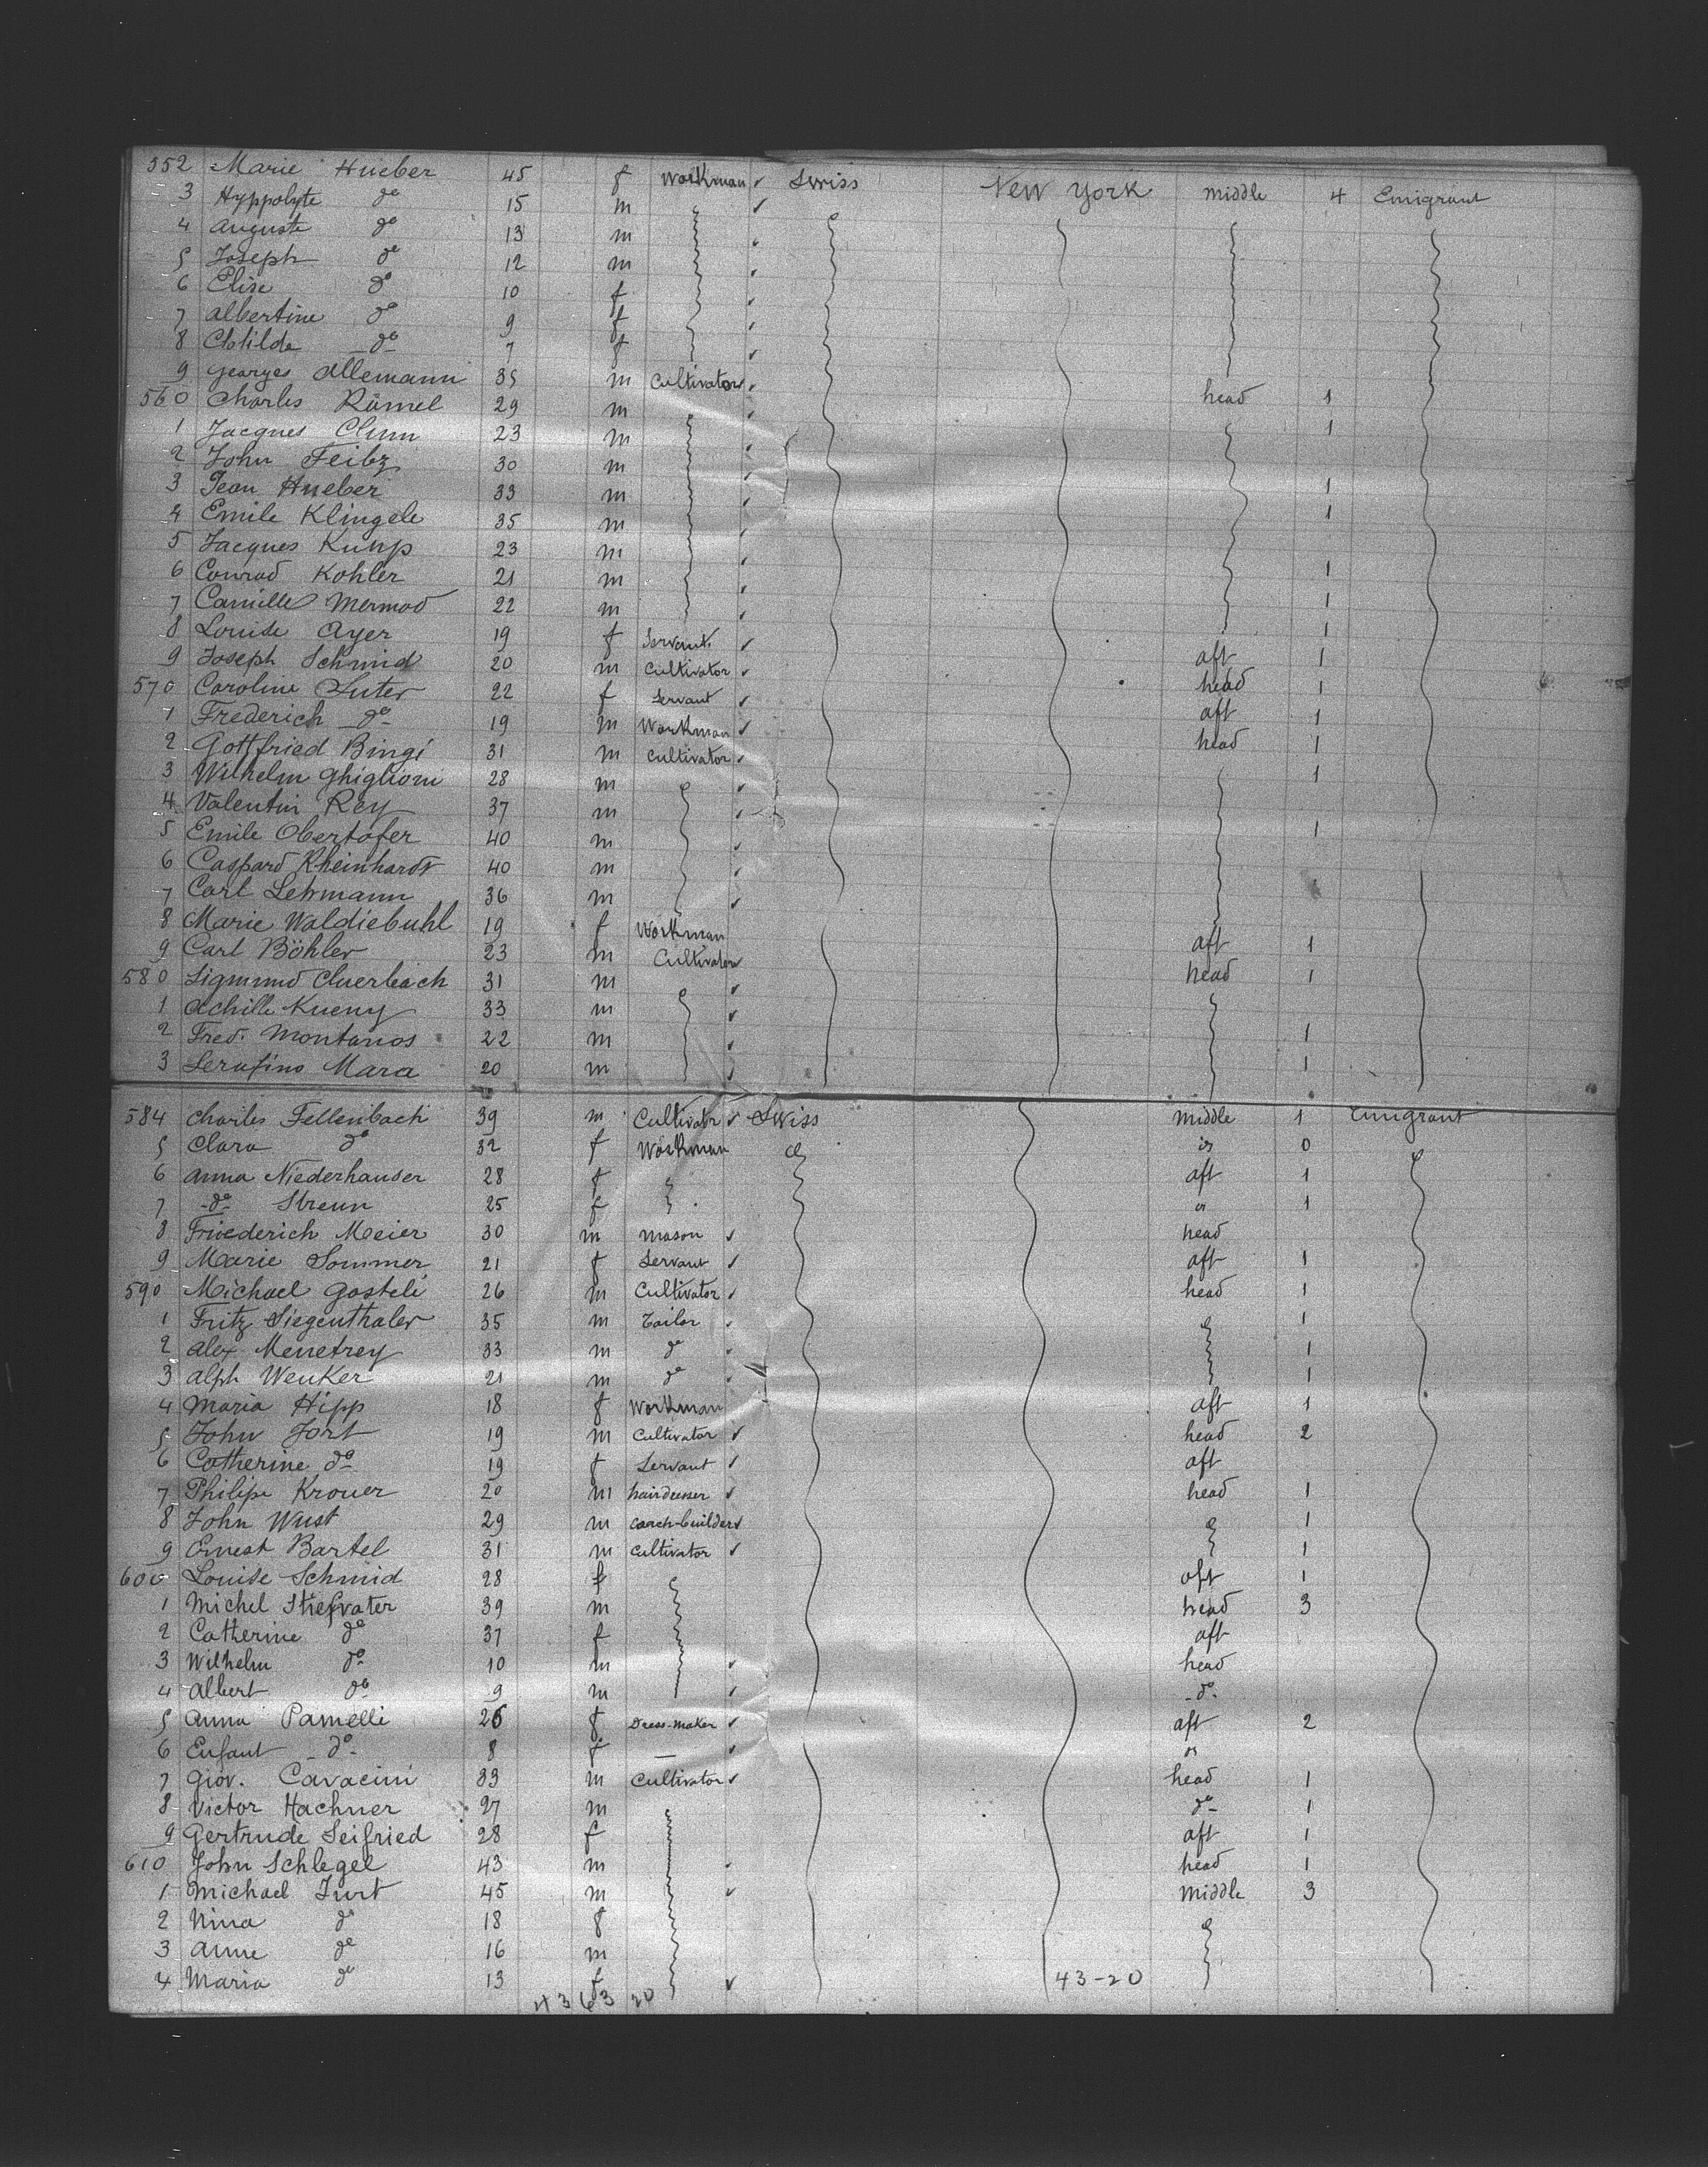 552 Marie Hueber 45 f Workman Swiss New York middle 4 Emigrant
3 Hyppolyte do 15 m
4 Auguste do 13 m
5 Joseph do 12 m
6 Elise do 10 f
7 Albertine do 9 f
8 Clotilde do 7 f
9 Georges Allemann 35 m Cultivator head 1
560 Charles Rämel 29 m 1
1 Jacques Clum 23 m
2 John Feibz 30 m 1
3 Jean Hueber 33 m 1
4 Emile Klingele 35 m
5 Jacques Kunp 23 m 1
6 Conrad Kohler 21 m 1
7 Camille Mermod 22 m 1
8 Louise Ayer 19 f Servant aft 1
9 Joseph Schmid 20 m Cultivator head 1
570 Caroline Suter 22 f Servant aft 1
1 Frederich do 19 m Workman head 1
2 Gottfried Bingi 31 m Cultivator 1
3 Wilhelm Ghiglioni 28 m
4 Valentin Rey 37 m 1
5 Emile Obertofer 40 m
6 Caspard Rheinhardt 40 m 1
7 Carl Lehmann 36 m
8 Marie Waldiebuhl 19 f Workman aft 1
9 Carl Böhler 23 m Cultivator head 1
580 Sigmund Auerbach 31 m
1 Achille Kueny 33 m
2 Fred. Montanos 22 m 1
3 Serafino Mara 20 m 1
584 Charles Fellenbach 39 m Cultivator Swiss middle 1 Emigrant
5 Clara do 32 f Workman 0
6 Anna Niederhauser 28 f aft 1
7 do Streun 25 f 1
8 Friederich Meier 30 m Mason head
9 Marie Sommer 21 f Servant aft 1
590 Michael Gosteli 26 m Cultivator head 1
1 Fritz Siegenthaler 35 m Tailor 1
2 Alex Menetrey 33 m do 1
3 Alph Wenker 21 m do 1
4 Maria Hipp 18 f Workman aft 1
5 John Jort 19 m Cultivator head 2
6 Catherine do 19 f Servant aft
7 Philipe Kroner 20 m hairdresser head 1
8 John Wust 29 m coach-builder 1
9 Ernest Bartel 31 m Cultivator 1
600 Louise Schmid 28 f aft 1
1 Michel Stiefvater 39 m head 3
2 Catherine do 37 f aft
3 Wilhelm do 10 m head
4 Albert do 9 m do
5 Anna Pamelli 26 f Dress-maker aft 2
6 Enfant do 8 f —
7 Giov. Cavacini 33 m Cultivator head 1
8 Victor Hachner 27 m do 1
9 Gertrude Seifried 28 f aft 1
610 John Schlegel 43 m head 1
1 Michael Jurt 45 m Middle 3
2 Nina do 18 f
3 Anne do 16 m
4 Maria do 13 f 43-20
43 63 20